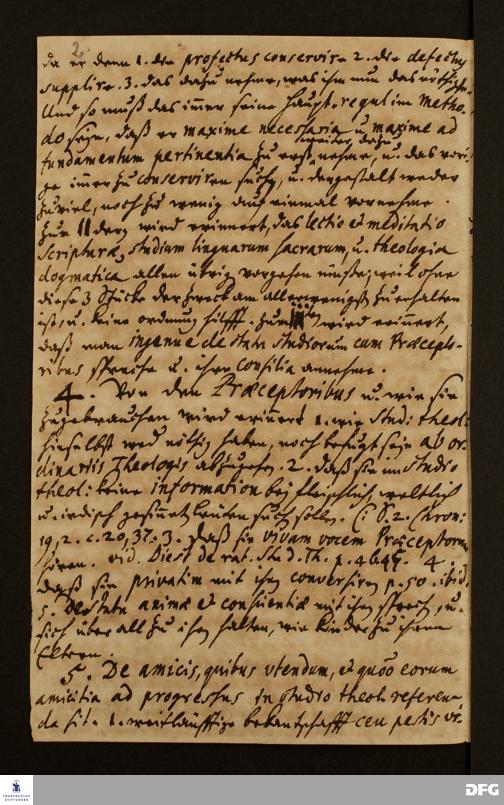 2
da er denn 1. die profectus conservire 2. die defectus
supplire. 3. das dazu nehme, was ihm nun das nöthigste
Und so muß das immer seine haupt-regul im Metho-
do seyn, daß er maxime necessaria u. maxime ad
fundamentum pertinentia zu erst nehme, u. das vori-
weiter dazu
ge immer zu conserviren suche, u. dergestalt weder
zu viel, noch zu wenig auf einmal vornehme.
Zur II wird erinnert, das lectio et meditatio
Scripturæ, studium linguarum sacrarum, u. theologia
dogmatica allen übrig vorgehen müsse, weil ohne
diese 3 Stücke der zweck am allerwenigst zu erhalten
ist, u. keine ordnung hilfft. Zur wird erinnert,
daß man ingenue de statu studiorum cum Præcepto-
ribus spreche u. ihre Consilia annehme.
4. Von den Præceptoribus u. wie sie
zugebrauchen wird erinnert 1. wie Stud: theol:
hieselbst nöthig haben, noch befugt seyn ab or-
dinariis Theologis abzugehen. 2. daß sie im Studio
theol: keine information bey fleischlich, weltlich
u. irdisch gesinnet leuten suchen sollen. C: S. 2. Chron:
19, 2. c. 20, 37. 3. daß sie vivam vocem Præceptorum
hören. vid. Diest de rat. Stud. Th. p. 4. 4.
daß sie privatim mit ihnen conversiren p. 50. ibid.
5. De statu animæ et conscientiæ mit ihnen sprechen, u.
sich überall zu ihnen halten, wie kinder zu ihren
Eltern.
5. De amicis, quibus utendum, et quō eorum
amicitia ad progressus in studio theol: referen-
da sit. 1. weitläufftige bekantschafft ceu pestis vi-
FRANCKESCHE
STIFTUNGEN
DFG